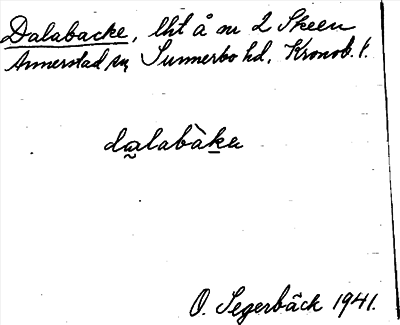 Dalabacke, lht å nr 2 Skeen
Annerstad sn, Sunnerbo hd, Kronob. l.
dalabàka
O. Segerbäck 1941.